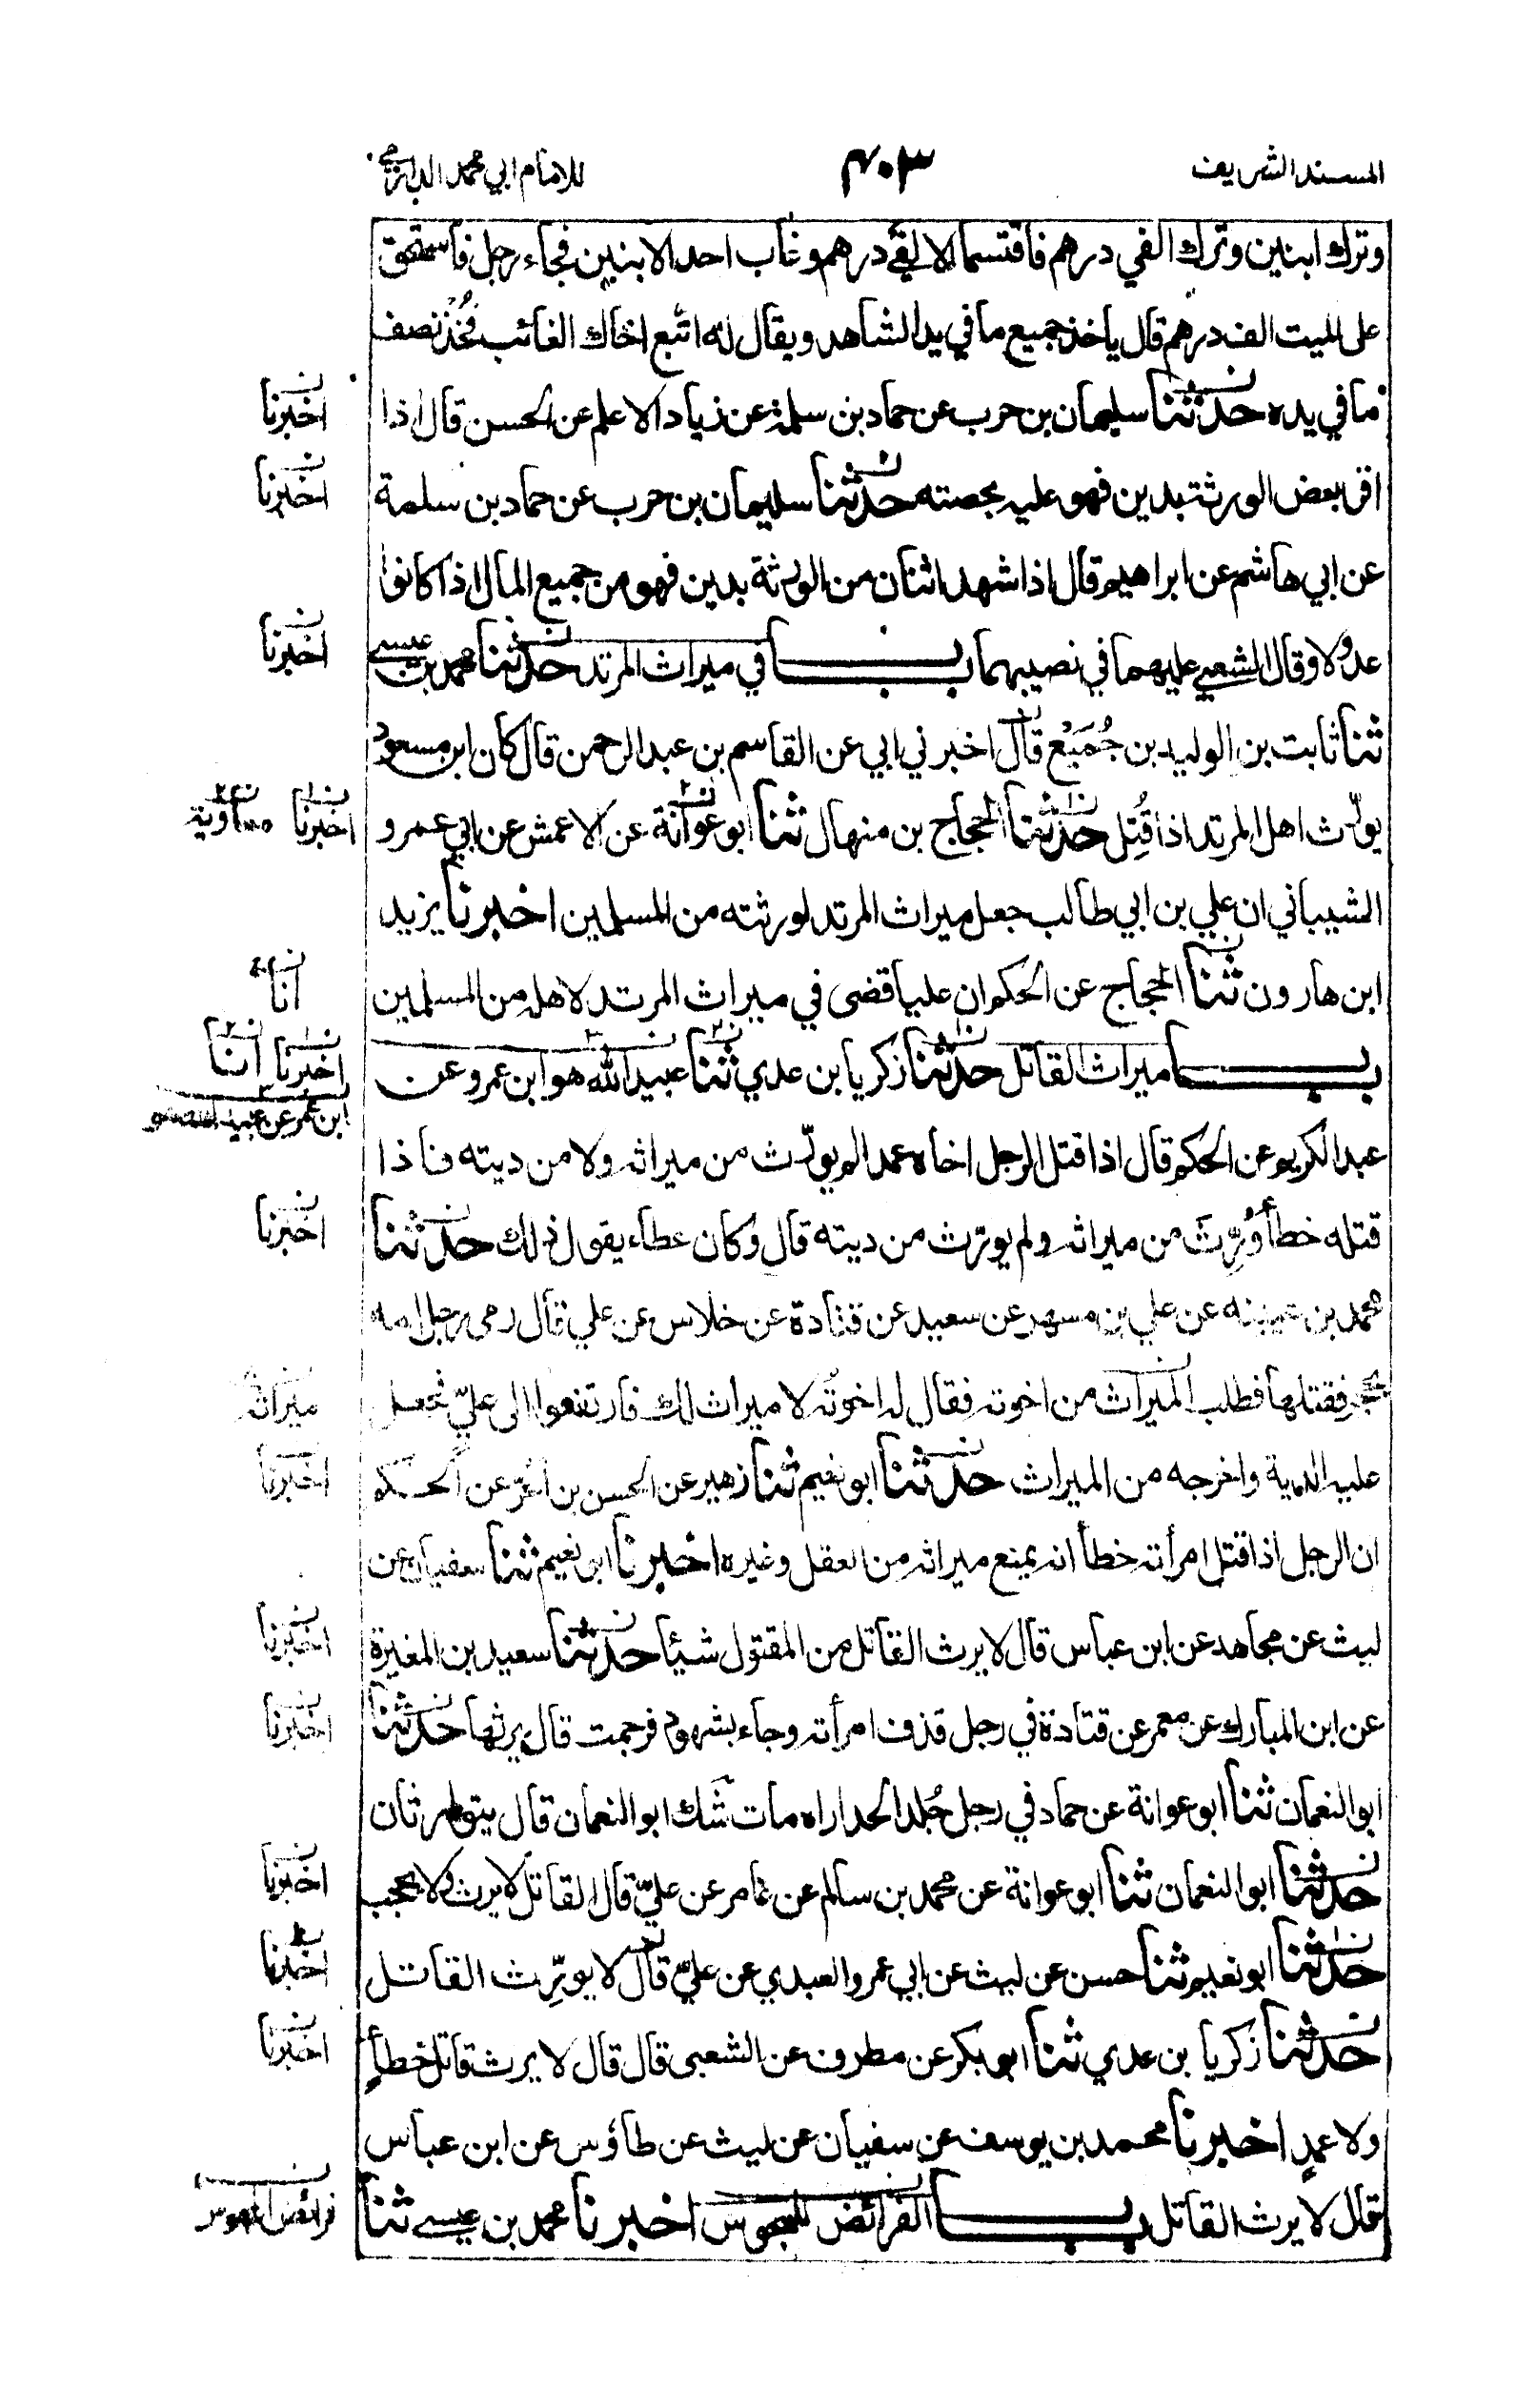 المسند الشريف ٤٠٣ للامام ابي محمد الدارمي
وترك ابنين وترك الفي درهم فاقتسما الالفي درهم وغاب احد الابنين فجاء رجل فاستحق
على الميت الف درهم قال ياخذ جميع ما في يد الشاهد ويقال له اتبع اخاك الغائب فخُذ نصف
ما في يده حدثنا سليمان بن حرب عن حماد بن سلمة عن زياد الاعلم عن الحسن قال اذا
اخبرنا
اقر بعض الورثة بدين فهو عليه بحصته حدثنا سليمان بن حرب عن حماد بن سلمة
اخبرنا
عن ابي هاشم عن ابراهيم قال اذا شهد اثنان من الورثة بدين فهو من جميع المال اذا كانوا
عدولا وقال الشعبي عليهما في نصيبهما باب في ميراث المرتد حدثنا محمد بن عيسى
اخبرنا
ثنا ثابت بن الوليد بن جُمَيْع قال اخبرني ابي عن القاسم بن عبد الرحمن قال كان ابن مسعود
يورّث اهل المرتد اذا قُتِل حدثنا الحجاج بن منهال ثنا ابو عوانة عن الاعمش عن ابي عمرو
اخبرنا معاوية
الشيباني ان علي بن ابي طالب جعل ميراث المرتد لورثته من المسلمين اخبرنا يزيد
ابن هارون ثنا الحجاج عن الحكم ان عليا قضى في ميراث المرتد لاهله من المسلمين
انا
باب ميراث القاتل حدثنا زكريا بن عدي ثنا عبيد الله هو ابن عمرو عن
اخبرنا انا
ابن عمر عن عبيد
عبد الكريم عن الحكم قال اذا قتل الرجل اخاه عمدا لم يورّث من ميراثه ولا من ديته فاذا
قتله خطأ وُرِّثَ من ميراثه ولم يورّث من ديته قال وكان عطاء يقول ذلك حدثنا
اخبرنا
محمد بن عيينه عن علي بن مسهر عن سعيد عن قتادة عن خلاس عن علي قال رمى رجل امه
بحجر فقتلها فطلب الميراث من اخوته فقال له اخوته لا ميراث لك فارتفعوا الى عليّ فجعل
ميراثه
عليه الدية واخرجه من الميراث حدثنا ابو نعيم ثنا زهير عن الحسن بن الحرّ عن الحكم
اخبرنا
ان الرجل اذا قتل امرأته خطأ انه يمنع ميراثه من العقل وغيره اخبرنا ابو نعيم ثنا سفيان عن
ليث عن مجاهد عن ابن عباس قال لا يرث القاتل من المقتول شيئا حدثنا سعيد بن المغيرة
اخبرنا
عن ابن المبارك عن معمر عن قتادة في رجل قذف امرأته وجاء بشهود فرجمت قال يرثها حدثنا
اخبرنا
ابو النعمان ثنا ابو عوانة عن حماد في رجل جُلد الحد اراه مات شك ابو النعمان قال يتوارثان
حدثنا ابو النعمان ثنا ابو عوانة عن محمد بن سالم عن عامر عن عليّ قال القاتل لا يرث ولا يحجب
اخبرنا
حدثنا ابو نعيم ثنا حسن عن ليث عن ابي عمرو العبدي عن علي قال لا يورّث القاتل
اخبرنا
حدثنا زكريا بن عدي ثنا ابو بكر عن مطرف عن الشعبي قال قال لا يرث قاتل خطأ
اخبرنا
ولا عمدٍ اخبرنا محمد بن يوسف عن سفيان عن ليث عن طاؤس عن ابن عباس
قال لا يرث القاتل باب الفرائض للمجوس اخبرنا محمد بن عيسى ثنا
فرائض المجوس